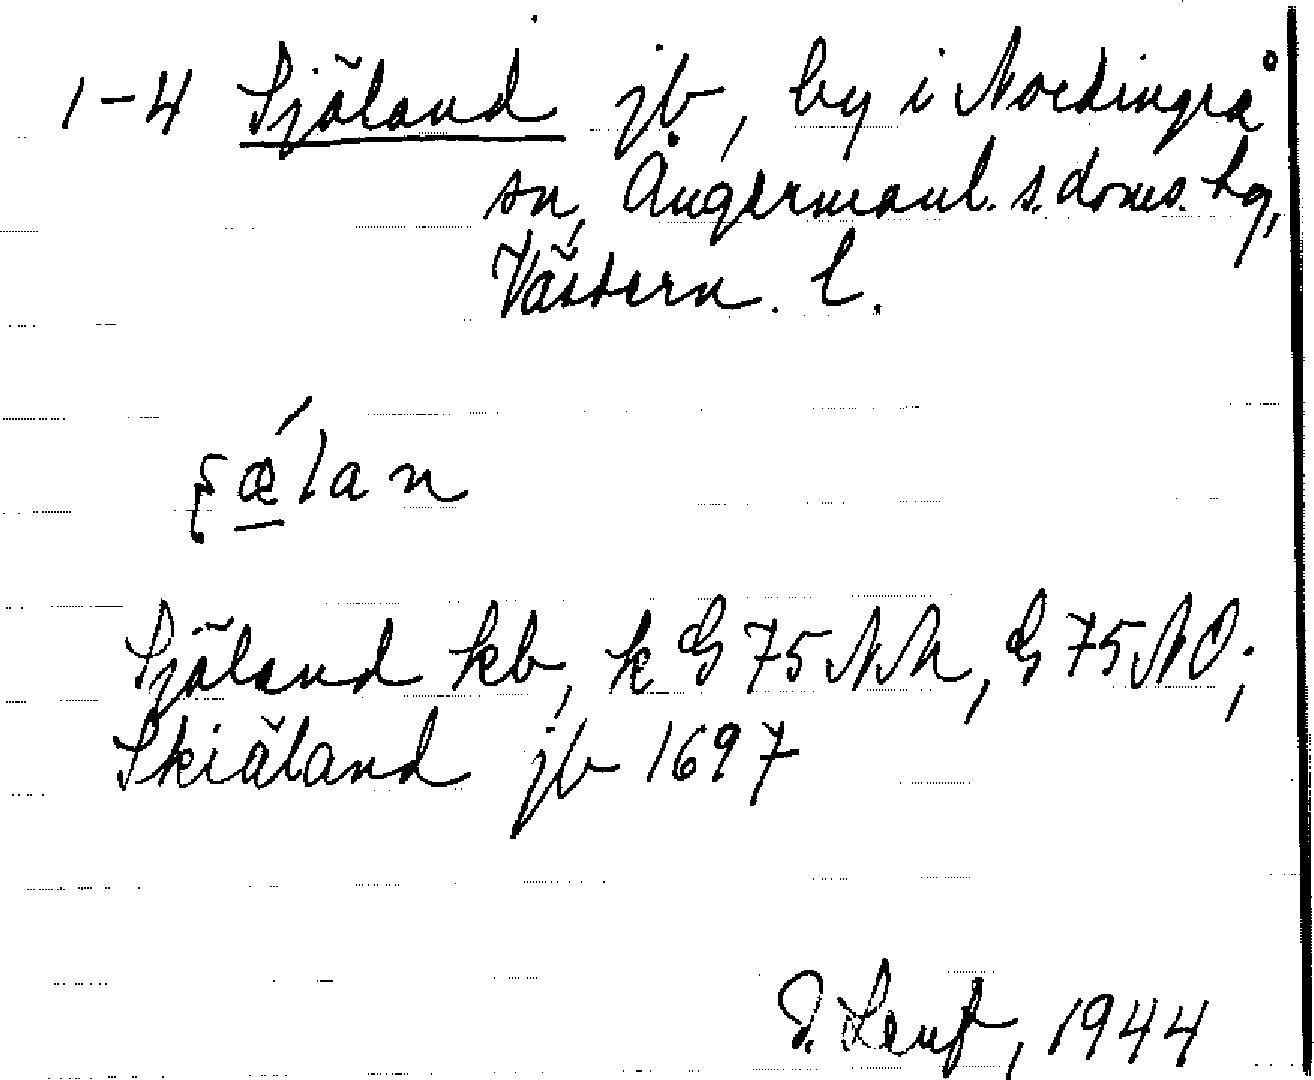 1-4 Själand jb, by i Nordingrå
sn, Ångermanl. s. doms. hg,
Västern. l.
ʂǽlan
Själand kb, k G 75 NN, G 75 NO;
Skiäland jb 1697
1944